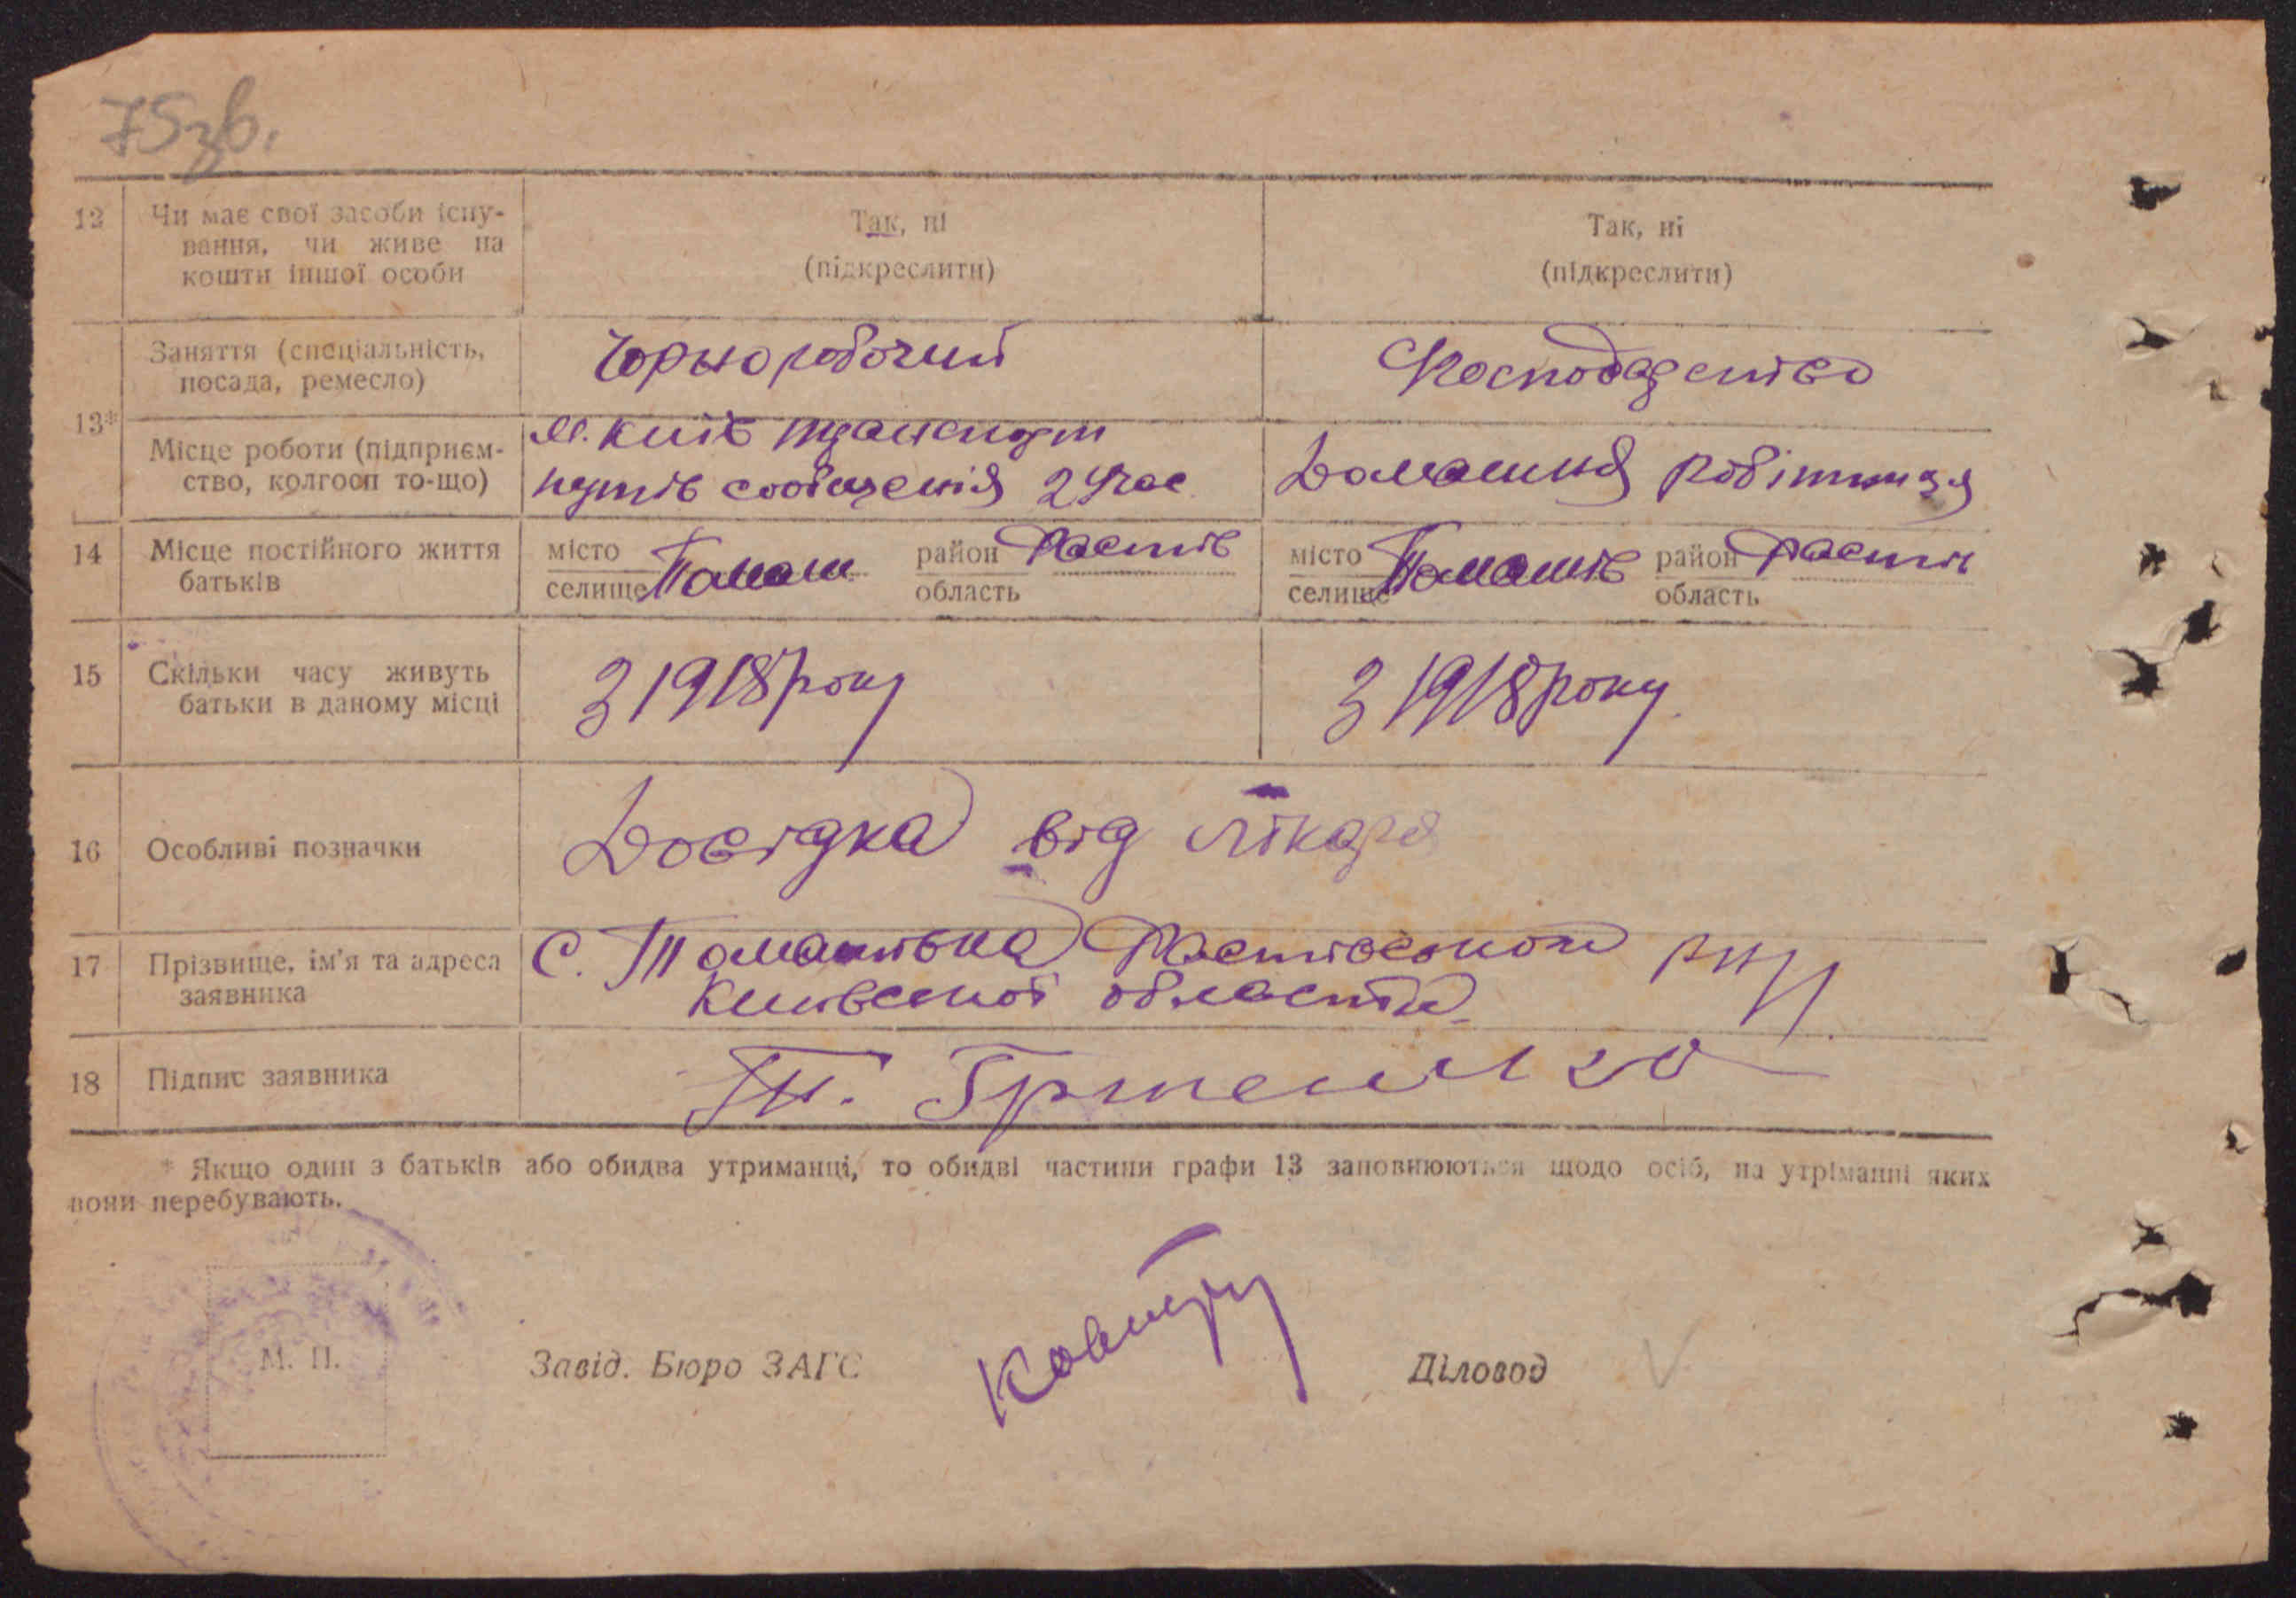 75зв.
12 Чи має свої засоби існу-
вання, чи живе на
кошти іншої особи
Так, ні
(підкреслити)
Так, ні
(підкреслити)
13*
Заняття (спеціальність,
посада, ремесло)
Чорноробочий
Господарство
Місце роботи (підприєм-
ство, колгосп то-що)
м. Київ транспорт
путів сообщенія
Домашня робітниця
14 Місце постійного життя
батьків
місто
селище Томаш.
район Фастів
область
місто
селище Томашів
район Фастів
область
15 Скільки часу живуть
батьки в даному місці
З 1918 року
З 1918 року
16 Особливі позначки
Довідка від лікаря
17 Прізвище, ім'я та адреса
заявника
С. Томашівка Фастівського р-ну
Київської області
18 Підпис заявника
* Якщо один з батьків або обидва утриманці, то обидві частини графи 13 заповнюються щодо осіб, на утріманні яких
вони перебувають.
М. П.
Завід. Бюро ЗАГС
Діловод